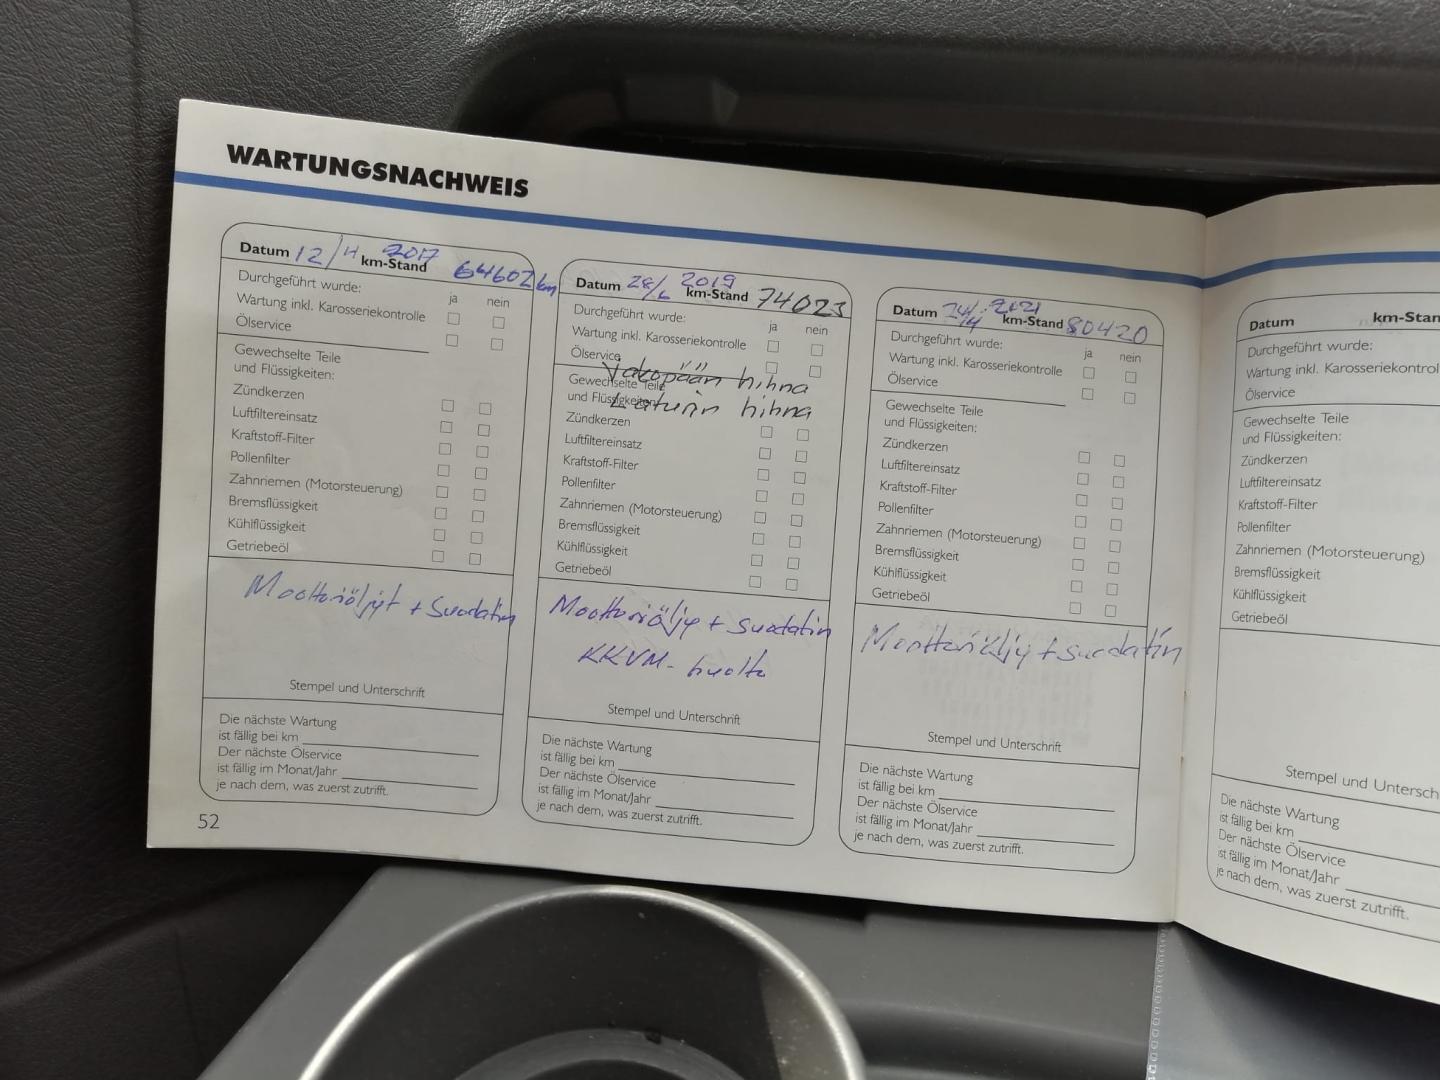 WARTUNGSNACHWEIS
Datum 12/4 2017 km-Stand 64602 km
Durchgeführt wurde: ja nein
Wartung inkl. Karosseriekontrolle
Ölservice
Gewechselte Teile
und Flüssigkeiten:
Zündkerzen
Luftfiltereinsatz
Kraftstoff-Filter
Pollenfilter
Zahnriemen (Motorsteuerung)
Bremsflüssigkeit
Kühlflüssigkeit
Getriebeöl
Moottoriöljyt + Suodatin
Stempel und Unterschrift
Die nächste Wartung
ist fällig bei km
Der nächste Ölservice
ist fällig im Monat/Jahr
je nach dem, was zuerst zutrifft.
52
Datum 28/6 2019 km-Stand 74023
Durchgeführt wurde: ja nein
Wartung inkl. Karosseriekontrolle
Ölservice
Jakopään hihna
Gewechselte Teile
und Flüssigkeiten:
Laturin hihna
Zündkerzen
Luftfiltereinsatz
Kraftstoff-Filter
Pollenfilter
Zahnriemen (Motorsteuerung)
Bremsflüssigkeit
Kühlflüssigkeit
Getriebeöl
Moottoriöljy + suodatin
KKVM-huolto
Stempel und Unterschrift
Die nächste Wartung
ist fällig bei km
Der nächste Ölservice
ist fällig im Monat/Jahr
je nach dem, was zuerst zutrifft.
Datum 2021 km-Stand 80420
Durchgeführt wurde: ja nein
Wartung inkl. Karosseriekontrolle
Ölservice
Gewechselte Teile
und Flüssigkeiten:
Zündkerzen
Luftfiltereinsatz
Kraftstoff-Filter
Pollenfilter
Zahnriemen (Motorsteuerung)
Bremsflüssigkeit
Kühlflüssigkeit
Getriebeöl
Moottoriöljy + suodatin
Stempel und Unterschrift
Die nächste Wartung
ist fällig bei km
Der nächste Ölservice
ist fällig im Monat/Jahr
je nach dem, was zuerst zutrifft.
Datum km-Stan
Durchgeführt wurde:
Wartung inkl. Karosseriekontrol
Ölservice
Gewechselte Teile
und Flüssigkeiten:
Zündkerzen
Luftfiltereinsatz
Kraftstoff-Filter
Pollenfilter
Zahnriemen (Motorsteuerung)
Bremsflüssigkeit
Kühlflüssigkeit
Getriebeöl
Stempel und Untersch
Die nächste Wartung
ist fällig bei km
Der nächste Ölservice
ist fällig im Monat/Jahr
je nach dem, was zuerst zutrifft.